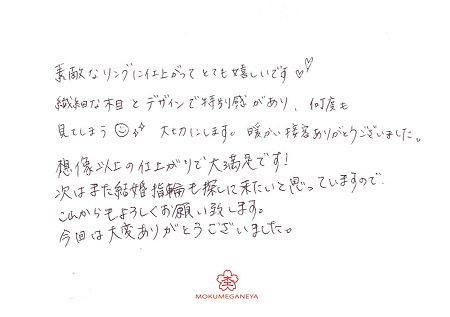 素敵なリングに仕上がってとても嬉しいです♡♡
繊細な木目とデザインで特別感があり、何度も
見てしまう☺ 大切にします。暖かい接客ありがとうございました。
想像以上の仕上がりで大満足です!
次はまた結婚指輪も探しに来たいと思っていますので、
これからもよろしくお願い致します。
今回は大変ありがとうございました。
MOKUMEGANEYA